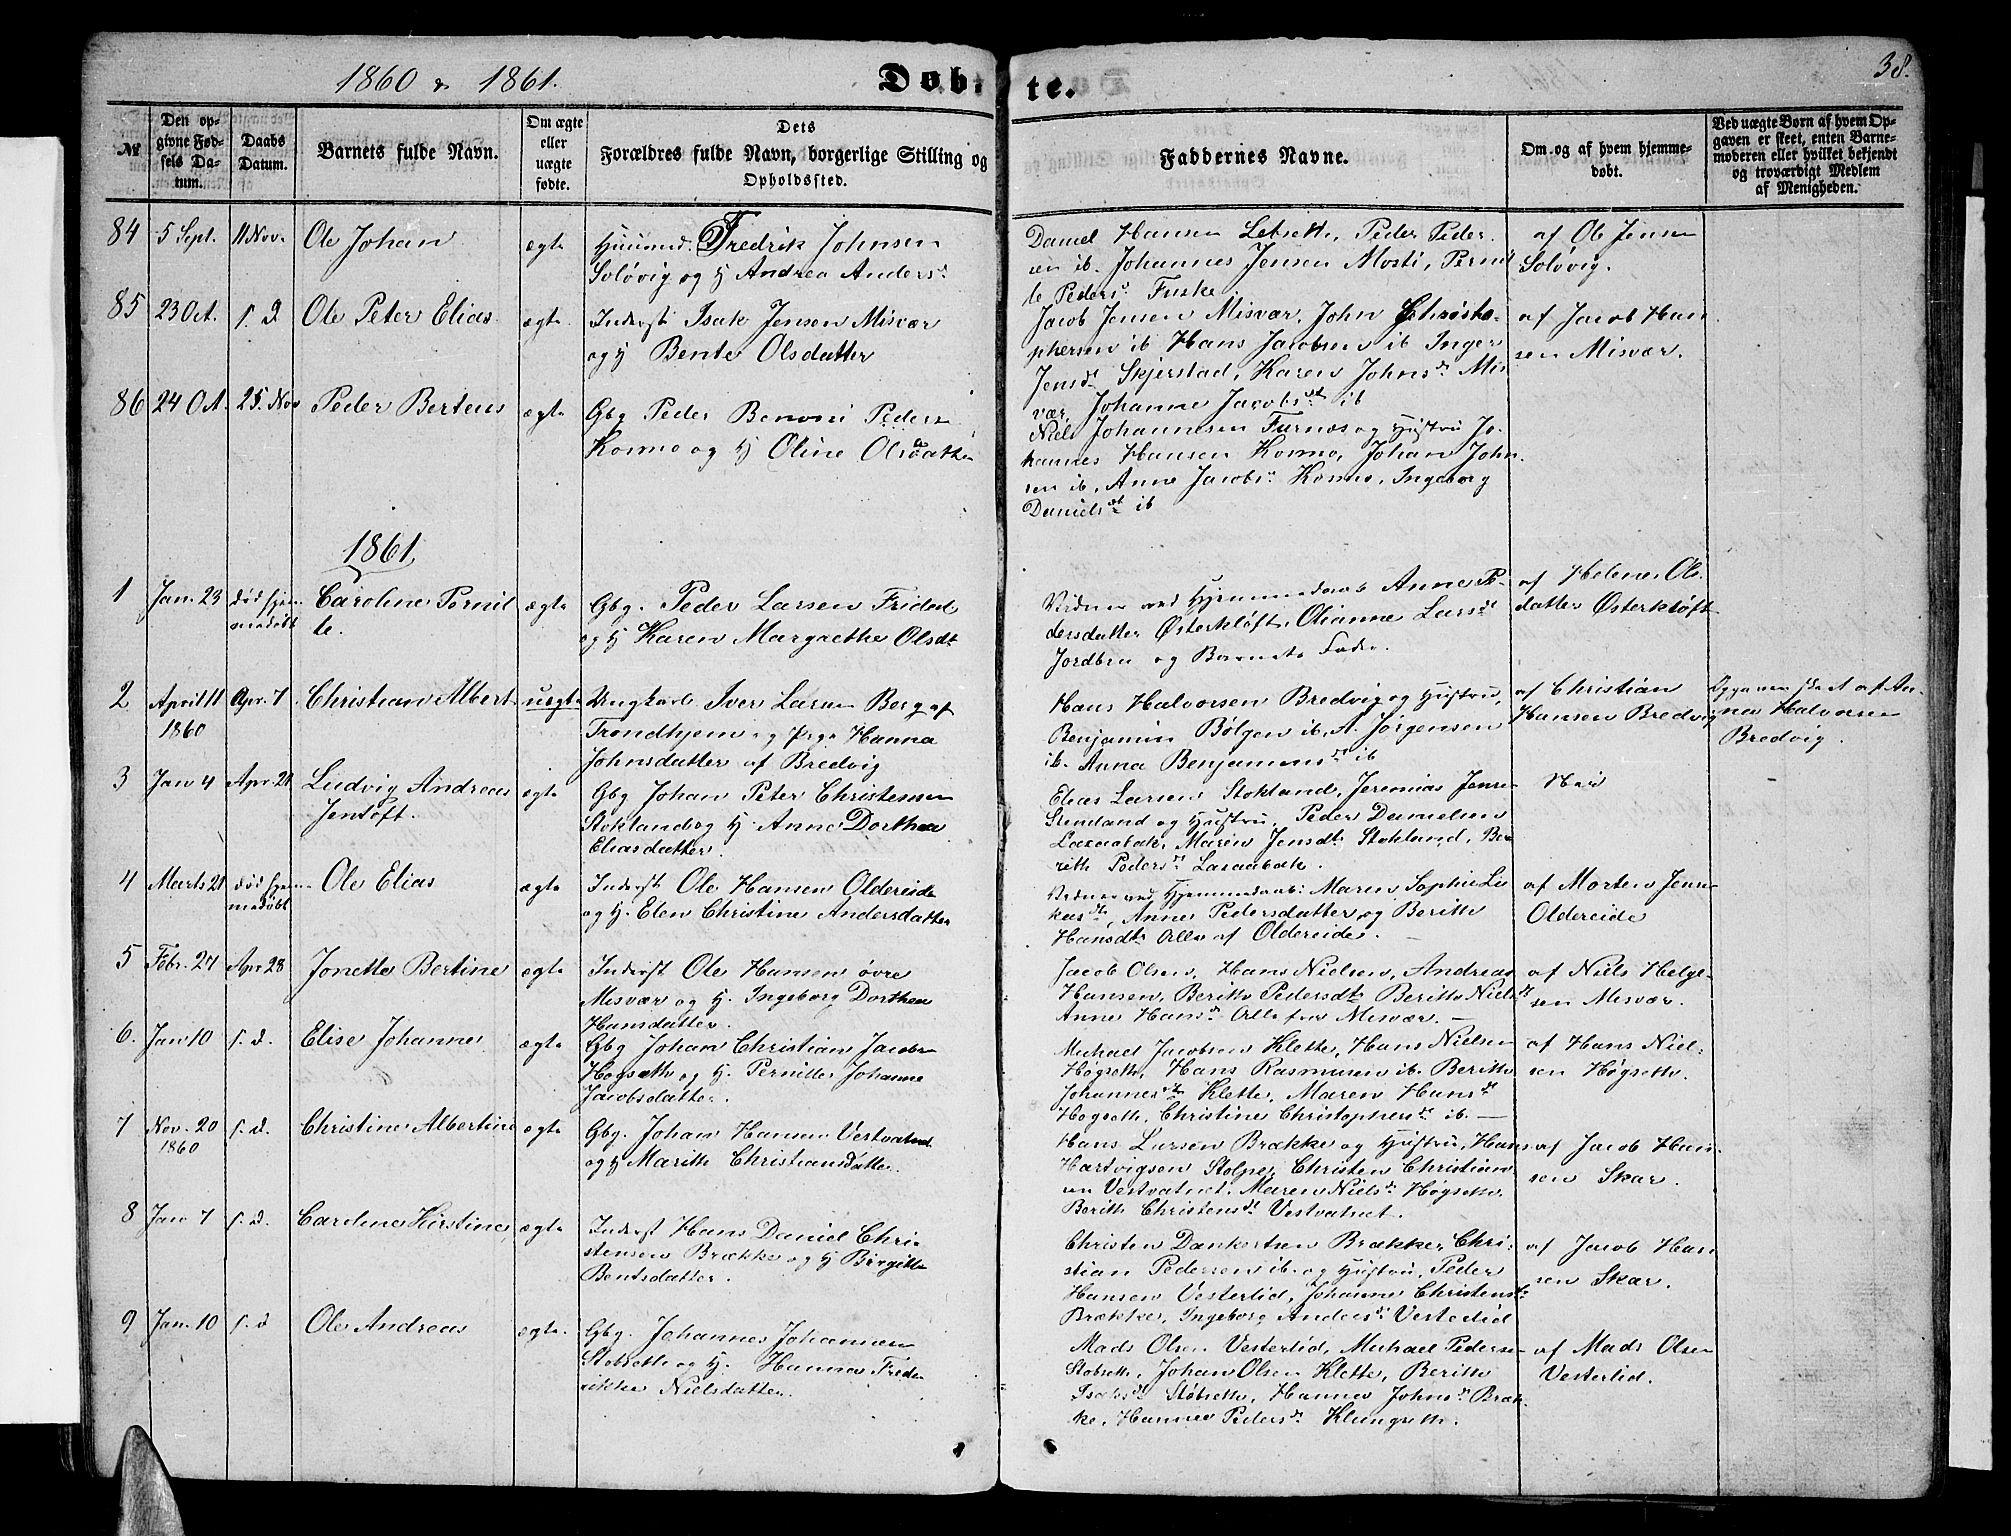 1860 & 1861.
Døbte.
38.
№
Den opgivne Fødsels Datum.
Daabs Datum.
Barnets fulde Navn.
Om ægte eller uægte fødte.
Dets Forældres fulde Navn, borgerlige Stilling og Opholdssted.
Faddernes Navne.
Om og af hvem hjemmedøbt.
Ved uægte Børn af hvem Opgaven er skeet, enten Barnemoderen eller hvilket bekjendt og troværdigt Medlem af Menigheden.
84 5 Sept. 11 Nov. Ole Johan ægte
Huusmd. Fredrik Johnsen
Soløvig og H Andrea Anders.
Daniel Hansen Letsette, Peder Peder
sen ib. Johannes Jensen Mosti, Pernil
le Peders. Fuske
af Ole Jensen
Soløvig.
85 23 Oct. s. D. Ole Peter Elias ægte.
Inderst Isak Jensen Misvær
og H Bente Olsdatter
Jacob Jensen Misvær, John Christo-
phersen ib Hans Jacobsen ib Inger
Jensdt Skjerstad, Karen Johnsdt Mis
vær, Johanne Jacobsdt ib
af Jacob Han
sen Misvær.
86 24 Oct. 25. Nov Peder Berteus ægte
Gbg Peder Benoni Peders
Kosmo og H Oline Olsdatter
Niels Johannesen Furnes og Hustru Jo-
hannes Hansen Kosmo, Johan John
sen ib, Anne Jacobs. Kosmo, Ingeborg
Danielsdt ib
1861
1 Jan. 23 død hjem
medøbt Caroline Pernil
le. ægte
Gbg. Peder Larsen Fridal
og H Karen Margrethe Olsdt
Vidner ved Hjemmedaab Anne Pe-
dersdatter Østerkløft, Olianne Larsdt
Jordbru og Barnets Fader.
af Helene Ols
datter Østerkløft
2 April 11
1860 Apr. 7 Christian Albert uægte
Ungkarl Iver Larsen Berg af
Trondhjem og Pige Hanna
Johnsdatter af Bredvig
Hans Halvorsen Bredvig og Hustru,
Benjamin Bølgen ib, A. Jørgensen
ib. Anna Benjaminsdt ib
af Christian
Hansen Bredvig
Opgaven skeet af An-
na Halvorsen
Bredvig.
3 Jan 4 Apr 21 Ludvig Andreas
Jentoft. ægte
Gbg Johan Peter Christensen
Stokland og H Anne Dorthea
Eliasdatter.
Elias Larsen Stokland, Jeremias Jensen
Stemland og Hustru, Peder Danielsen
Laxaabak, Maren Jensdt Stokland, Be
rith Pedersdt Laxaabak.
Nei
4 Marts 21 død hjem
medøbt Ole Elias ægte
Inderst Ole Hansen Oldereide
og H. Elen Christine Andersdatter
Vidner ved Hjemmedaab: Maren Sophie Lu
kasdtr, Anne Pedersdatter og Berith
Hansdt Alle af Oldereide. —
af Morten Jensen
Oldereide
5 Febr. 27 Apr 28 Jonette Bertine ægte
Inderst Ole Hansen øvre
Misvær og H. Ingeborg Dorthea
Hansdatter.
Jacob Olsen, Hans Nielsen, Andreas
Hansen, Berith Pedersdt Berith Nielsdt
Anne Hansdt Alle fra Misvær. —
af Niels Helge-
sen Misvær.
6. Jan 10 s. d. Elise Johanne ægte
Gbg Johan Christian Jacobsen
Høgseth og H. Pernille Johanne
Jacobsdatter.
Michael Jacobsen Klette, Hans Nielsen
Høgseth, Hans Rasmusen ib. Berith
Johannesdtr Klette, Maren Hansdt
Høgseth, Christine Christophersdt ib. —
af Hans Niel-
sen Høgseth.
7 Nov. 20
1860 s. d. Christine Albertine ægte
Gbg. Johan Hansen Vestvatnet
og H Marith Christiansdatter.
Hans Larsen Brække og Hustru, Hans
Hartvigsen Stolpe, Christen Christian
sen Vestvatnet, Maren Nielsdt Høgseth.
Berith Christensdt Vestvatnet.
af Jacob Han-
sen Skar.
8 Jan 7 s. d. Caroline Kirstine, ægte
Inderst Hans Daniel Chri-
stensen Brække og H Birgitte
Bentsdatter.
Christen Dankertsen Brække, Chri-
stian Pedersen ib. og Hustru, Peder
Hansen Vesterlid, Johanne Christensdtr
Brække, Ingeborg Andersdt Vesterlid
af Jacob Han
sen Skar.
9 Jan. 10 s. d Ole Andreas ægte.
Gbg. Johannes Johannesen
Stobsette og H. Hanna Frede
rikke Nielsdatter.
Mads Olsen Vesterlid, Michael Pedersen
Stobseth, Johan Olsen Klette, Berith
Isaksdt Stobseth, Hanne Johnsdt Bræk
ke, Hanne Pedersdt Klungseth.
af Mads Olsen
Vesterlid.